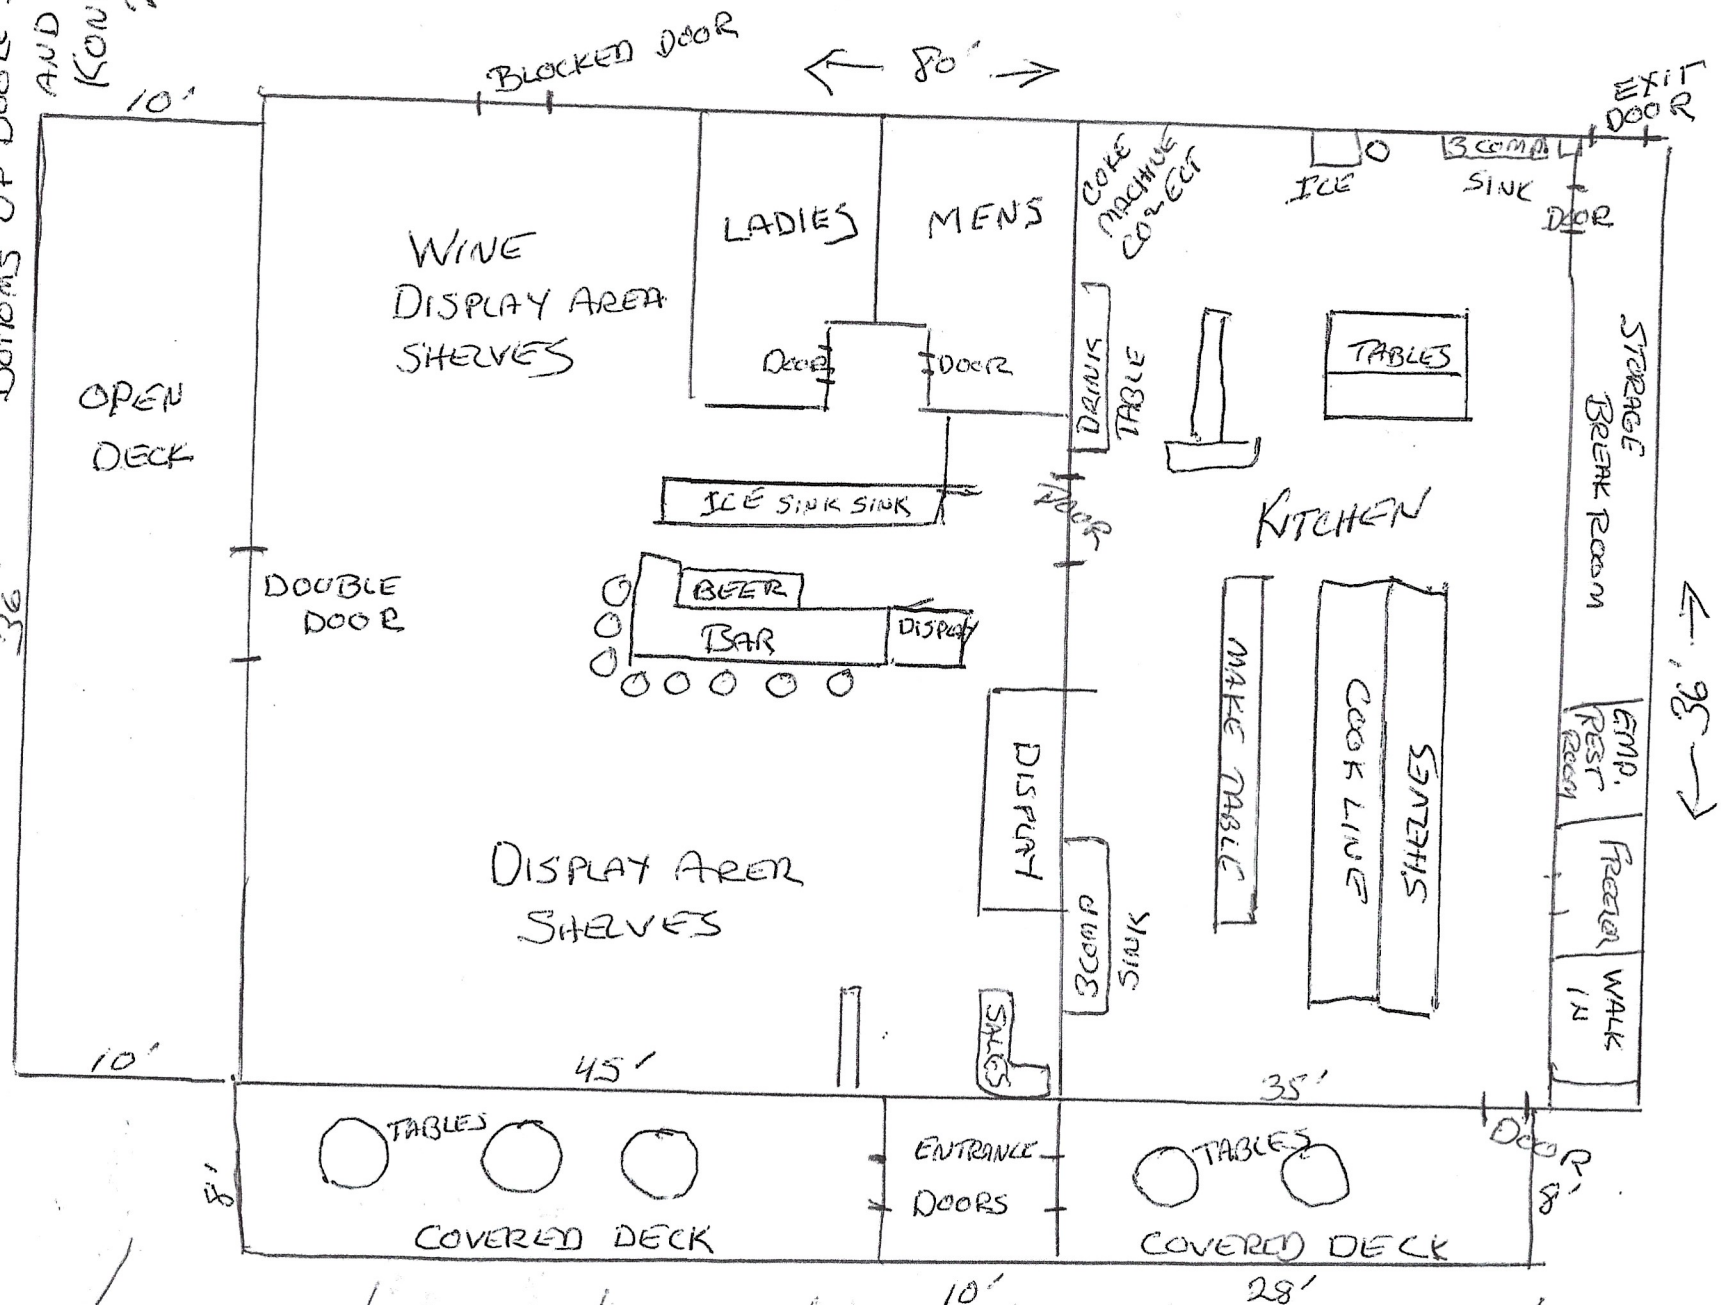 BOTTOMS UP
AND
KON
10'
BLOCKED DOOR
← 80' →
EXIT
DOOR
WINE
DISPLAY AREA
SHELVES
LADIES
MENS
DOOR
DOOR
COKE
MACHINE
ICE
3 COMP.
SINK
DOOR
DRINK
TABLE
TABLES
STORAGE
BREAK ROOM
OPEN
DECK
36'
ICE SINK SINK
DOOR
KITCHEN
DOUBLE
DOOR
BEER
BAR
DISPLAY
DISPLAY
MAKE TABLE
COOK LINE
SHELVES
EMP.
REST
ROOM
← 36' →
FREEZER
WALK
IN
DISPLAY AREA
SHELVES
3 COMP
SINK
SALES
10'
45'
35'
DOOR
8'
TABLES
COVERED DECK
ENTRANCE
DOORS
TABLES
COVERED DECK
8'
10'
28'